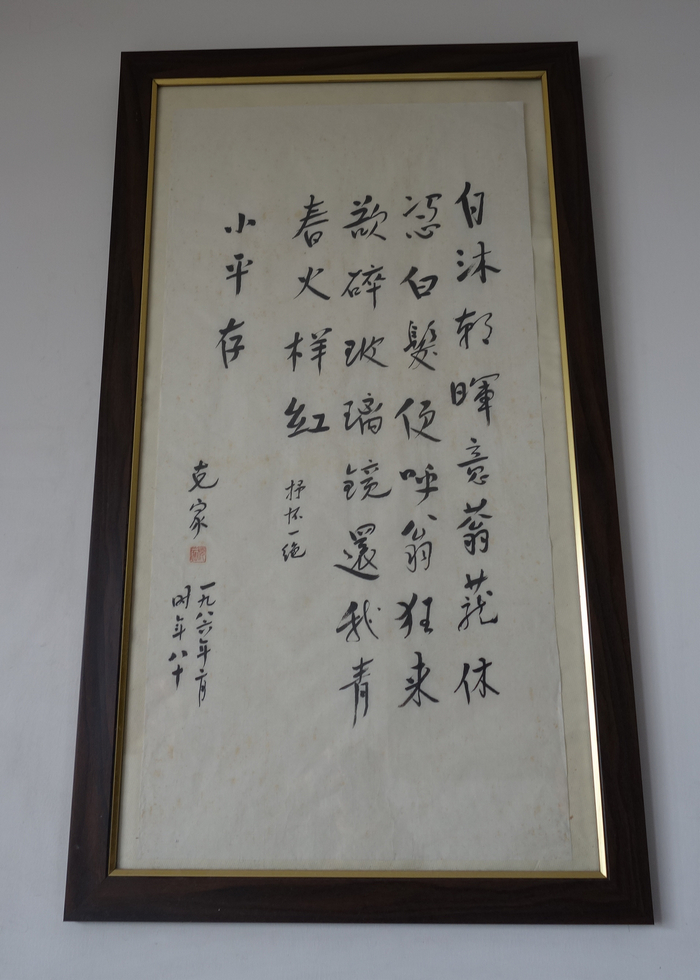 自沐朝暉意蓊蘢休
憑白髮便呼翁狂来
欲碎玻璃鏡還我青
春火样红
抒怀一绝
小平存
克家
一九八六年二月
时年八十